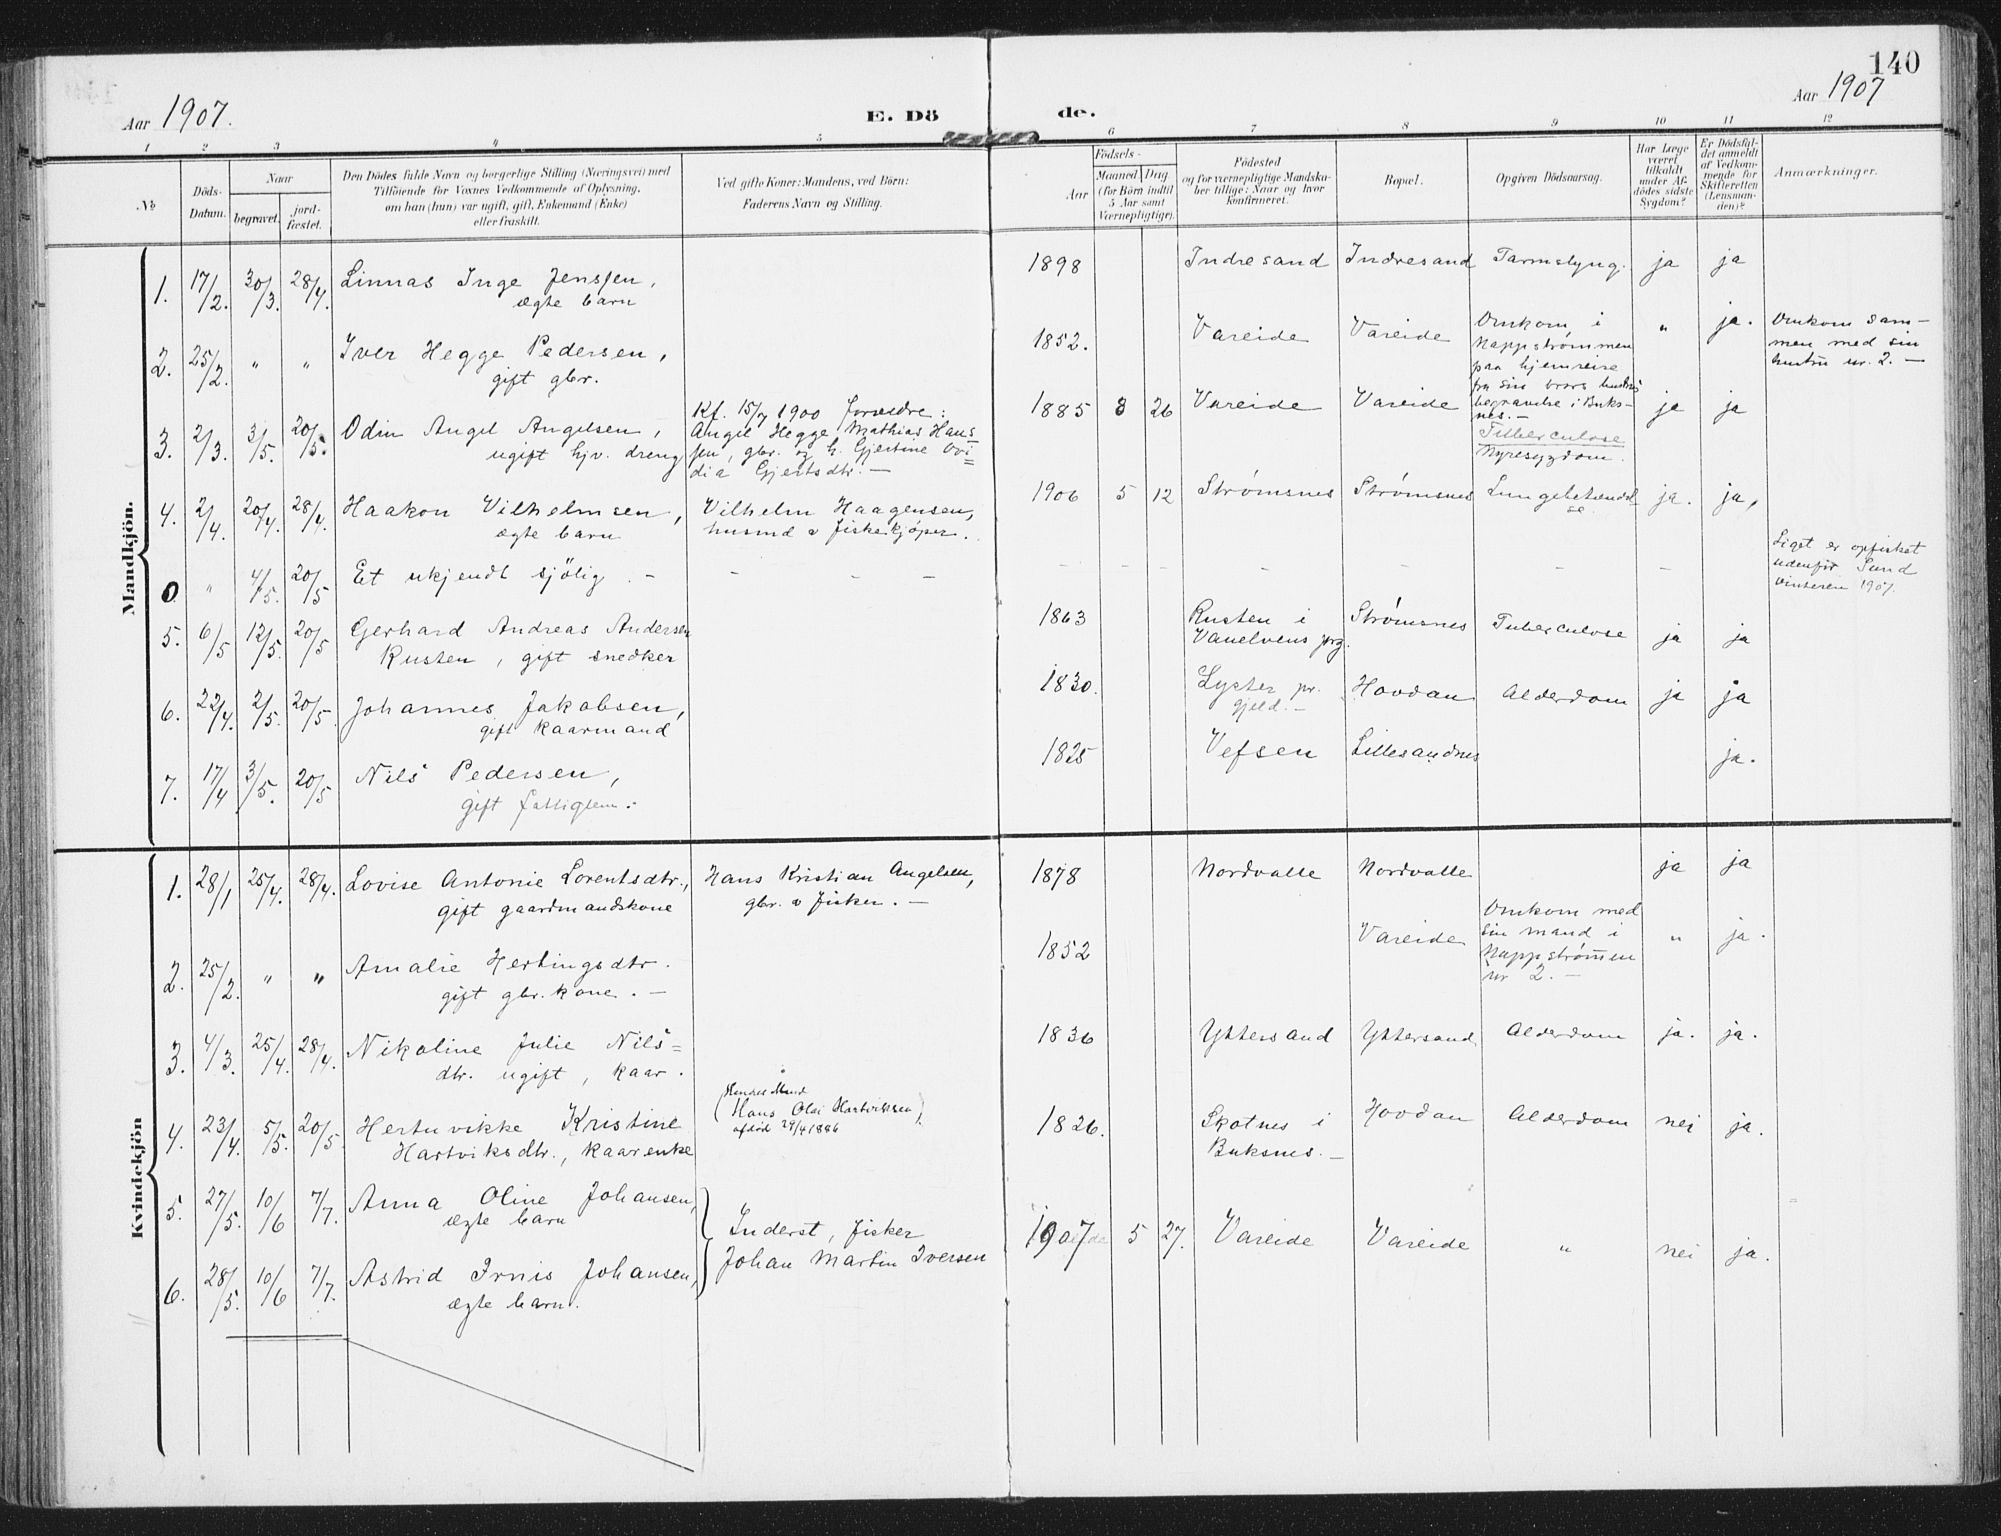 140
Aar 1907.
E. Dö de.
Aar 1907
1 2 3 4 5 6 7 8 9 10 11 12
№
Döds-
Datum.
Naar
begravet.
jord-
fæstet.
Den Dödes fulde Navn og borgerlige Stilling (Næringsvei) med
Tilföiende for Voxnes Vedkommende af Oplysning,
om han (hun) var ugift, gift, Enkemand (Enke)
eller fraskilt.
Ved gifte Koner: Mandens, ved Börn:
Faderens Navn og Stilling.
Födsels-
Aar
Maaned
Dag
(for Börn indtil
5 Aar samt
Værnepligtige).
Födested
og for værnepligtige Mandska-
ber tillige: Naar og hvor
konfirmeret.
Bopæl.
Opgiven Dödsaarsag.
Har Læge
været
tilkaldt
under Af-
dödes sidste
Sygdom?
Er Dödsfal-
det anmeldt
af Vedkom-
mende for
Skifteretten
(Lensman-
den)?
Anmærkninger.
Mandkjön.
1. 17/2. 30/3. 28/4. Linnas Inge Jenssen,
ægte barn
1898 Indresand Indresand Tarmslyng. ja ja
2. 25/2. " " Iver Hegge Pedersen,
gift gbr.
1852. Vareide Vareide Omkom i
Nappstrømmen
paa hjemreise
fra sin brors hustrus
begravelse i Buks-
nes.-
" ja. Omkom sam-
men med sin
hustru nr. 2. -
3. 2/3. 3/5. 20/5. Odin Angel Angelsen,
ugift hjv. dreng
Kf. 15/7 1900 forældre:
Angel Hegge Mathias Hans-
sen, gbr. og h. Gjertine Ovi=
dia Gjertsdtr. -
1885 8 26 Vareide Vareide Tuberculose
Nyresygdom. ja ja
4. 2/4. 20/4. 28/4. Haakon Vilhelmsen,
ægte barn
Vilhelm Haagensen,
husmd & fiskekjøper.
1906 5 12 Strømsnes Strømsnes Lungebetændel
se. ja. ja,
0. " 4/5. 20/5 Et ukjendt sjölig. - - - -
- - - - - - -
Liget er opfisket
udenfor Sund
vinteren 1907.
5. 6/5 12/5. 20/5 Gerhard Andreas Andersen
Rusten, gift snedker
1863 Rusten i
Vanelvens prg. Strømsnes Tuberculose ja ja
6. 22/4. 2/5. 20/5. Johannes Jakobsen,
gift kaarmand
1830. Lyster pr.
gjeld.- Hovdan Alderdom ja ja
7. 17/4 3/5. 20/5 Nils Pedersen,
gift fattiglem.-
1825 Vefsen Lillesandnes ja.
Kvindekjön
1. 28/1 25/4. 28/4. Lovise Antonie Lorentsdtr.,
gift gaardmandskone
Hans Kristian Angelsen,
gbr. & fisker. -
1878 Nordvalle Nordvalle ja ja
2. 25/2. " " Amalie Hertingsdtr.
gift gbr. kone. -
1852 Vareide Omkom med
sin mand i
Nappstrømmen
nr 2. - " ja.
3. 4/3. 25/4. 28/4. Nikoline Julie Nils=
dtr. ugift, kaar.
1836 Yttersand Yttersand Alderdom ja. ja.
4. 23/4. 5/5. 20/5 Hertuvikke Kristine
Hartviksdtr., kaarenke
(Hendes Mand
Hans Olai Hartviksen).
afdöd 29/4 1886
1826. Skotnes i
Buksnes. - Hovdan Alderdom nei ja.
5. 27/5. 10/6 7/7. Anna Oline Johansen,
ægte barn
6. 28/5. 10/6 7/7. Astrid Irnis Johansen,
ægte barn.
Inderst, fisker
Johan Martin Iversen
1907 5 27. Vareide Vareide " nei ja.